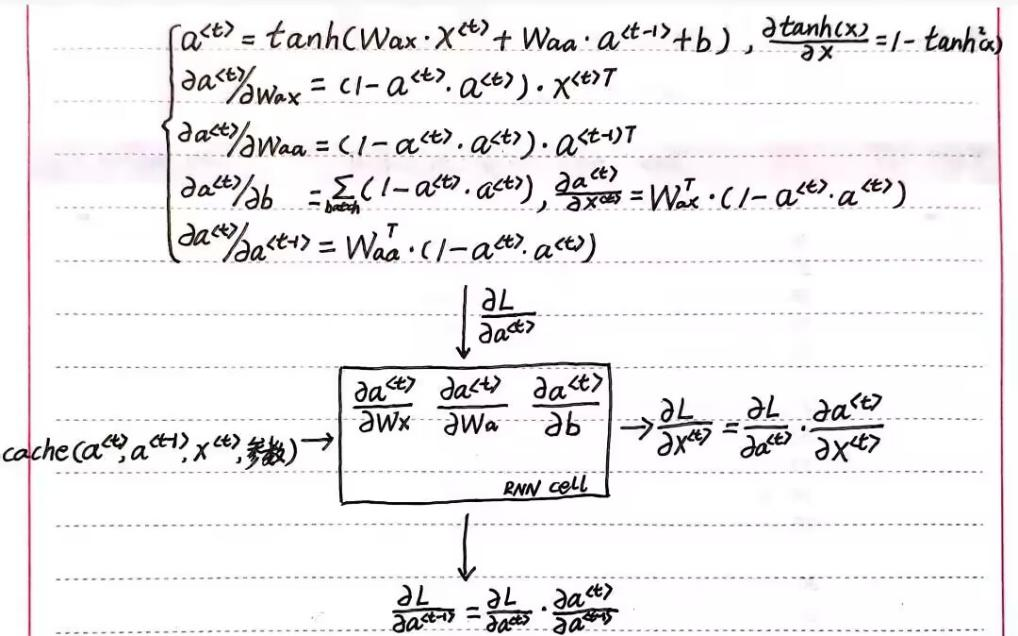 a<t> = tanh(Wax · X<t> + Waa · a<t-1> + b), ∂tanh(x)/∂x = 1 - tanh²(x)
∂a<t>/∂Wax = (1 - a<t> · a<t>) · X<t>T
∂a<t>/∂Waa = (1 - a<t> · a<t>) · a<t-1>T
∂a<t>/∂b = Σbatch (1 - a<t> · a<t>), ∂a<t>/∂X<t> = WaxT · (1 - a<t> · a<t>)
∂a<t>/∂a<t-1> = WaaT · (1 - a<t> · a<t>)
∂L/∂a<t>
∂a<t>/∂Wx ∂a<t>/∂Wa ∂a<t>/∂b
cache(a<t>, a<t-1>, x<t>, 参数) → → ∂L/∂X<t> = ∂L/∂a<t> · ∂a<t>/∂X<t>
RNN cell
∂L/∂a<t-1> = ∂L/∂a<t> · ∂a<t>/∂a<t-1>